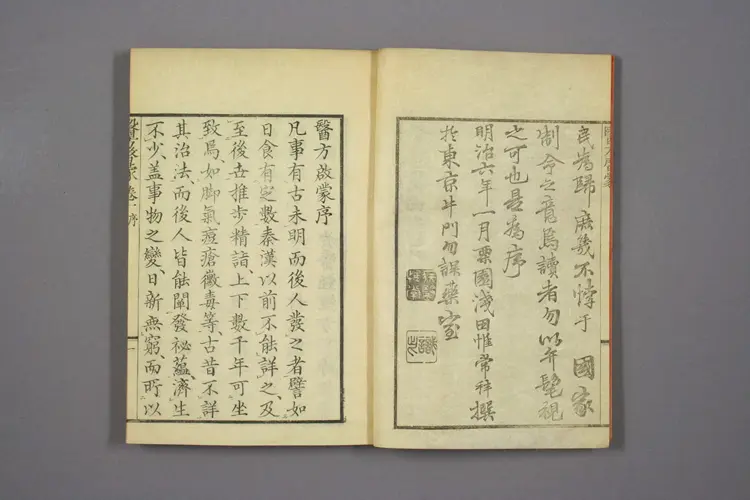 民為歸庶幾不悖于　國家
制令之意焉讀者勿以弁髦視
之可也是為序
明治六年一月栗園淺田惟常撰
於東京牛門勿誤藥室
醫方啟蒙序
凡事有古未明而後人發之者譬如
日食有定數秦漢以前不能詳之及
至後世推步精諳上下數千年可坐
致焉如脚氣痘瘡黴毒等古昔不詳
其治法而後人皆能闡發祕蘊濟生
不少蓋事物之變日新無窮而所以